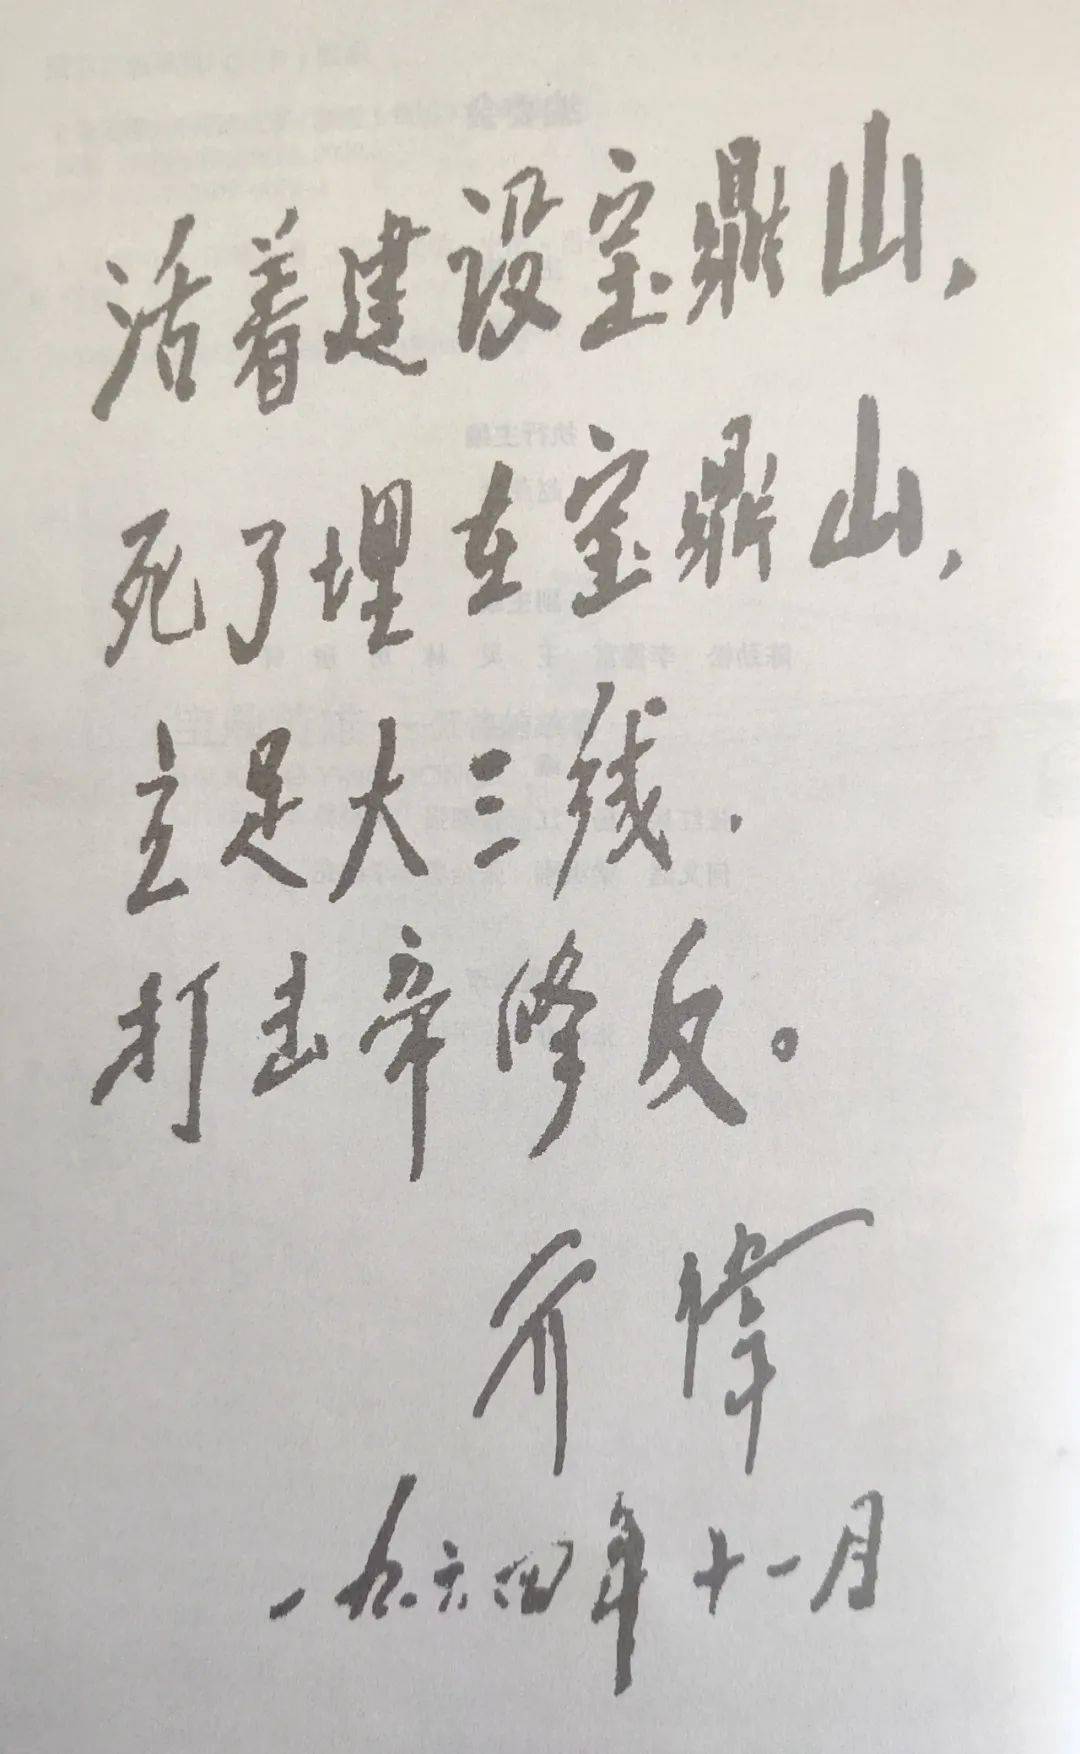 活着建设宝鼎山，
死了埋在宝鼎山，
立足大三线，
打击帝修反。
亓伟
一九六四年十一月